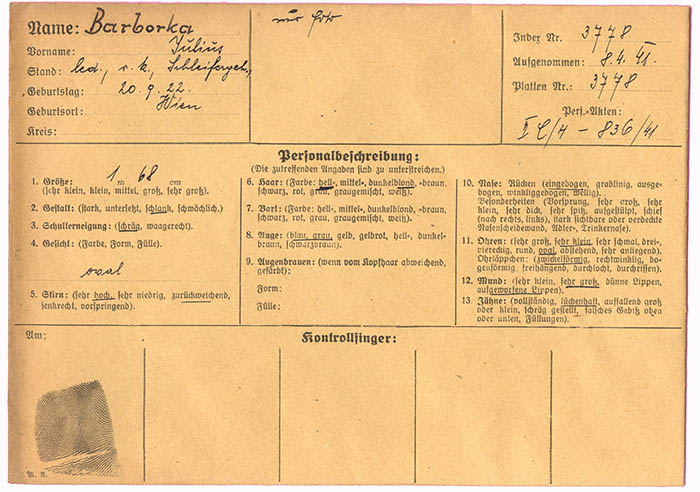 Name: Barborka
Vorname: Julius
Stand: led., r. k., Schleifergeh.,
Geburtstag: 20. 9. 22.
Geburtsort: Wien
Kreis:
nur Foto
Index Nr. 3778
Aufgenommen: 8. 4. 41.
Platten Nr.: 3778
Pers.-Akten:
II C/4 - 836/41
Personalbeschreibung:
(Die zutreffenden Angaben sind zu unterstreichen.)
1. Größe: 1 m 68 cm
(sehr klein, klein, mittel, groß, sehr groß).
2. Gestalt: (stark, untersetzt, schlank, schwächlich).
3. Schulterneigung: (schräg, waagerecht).
4. Gesicht: (Farbe, Form, Fülle).
oval
5. Stirn: (sehr hoch, sehr niedrig, zurückweichend,
senkrecht, vorspringend).
6. Haar: (Farbe: hell-, mittel-, dunkelblond, -braun,
schwarz, rot, grau, graugemischt, weiß).
7. Bart: (Farbe: hell-, mittel-, dunkelblond, -braun,
schwarz, rot, grau, graugemischt, weiß).
8. Auge: (blau, grau, gelb, gelbrot, hell-, dunkel-
braun, schwarzbraun).
9. Augenbrauen: (wenn vom Kopfhaar abweichend,
gefärbt):
Form:
Fülle:
10. Nase: Rücken (eingebogen, gradlinig, ausge-
bogen, winkliggebogen, wellig).
Besonderheiten (Vorsprung, sehr groß, sehr
klein, sehr dick, sehr spitz, aufgestülpt, schief
(nach rechts, links), stark sichtbare oder verdeckte
Nasenscheidewand, Adler-, Trinkernase).
11. Ohren: (sehr groß, sehr klein, sehr schmal, drei-
viereckig, rund, oval, abstehend, sehr anliegend).
Ohrläppchen: (zwickelförmig, rechtwinklig, bo-
genförmig, freihängend, durchlocht, durchrissen).
12. Mund: (sehr klein, sehr groß, dünne Lippen,
aufgeworfene Lippen).
13. Zähne: (vollständig, lückenhaft, auffallend groß
oder klein, schräg gestellt, falsches Gebiß oben
oder unten, Füllungen).
Am:
Kontrollfinger: